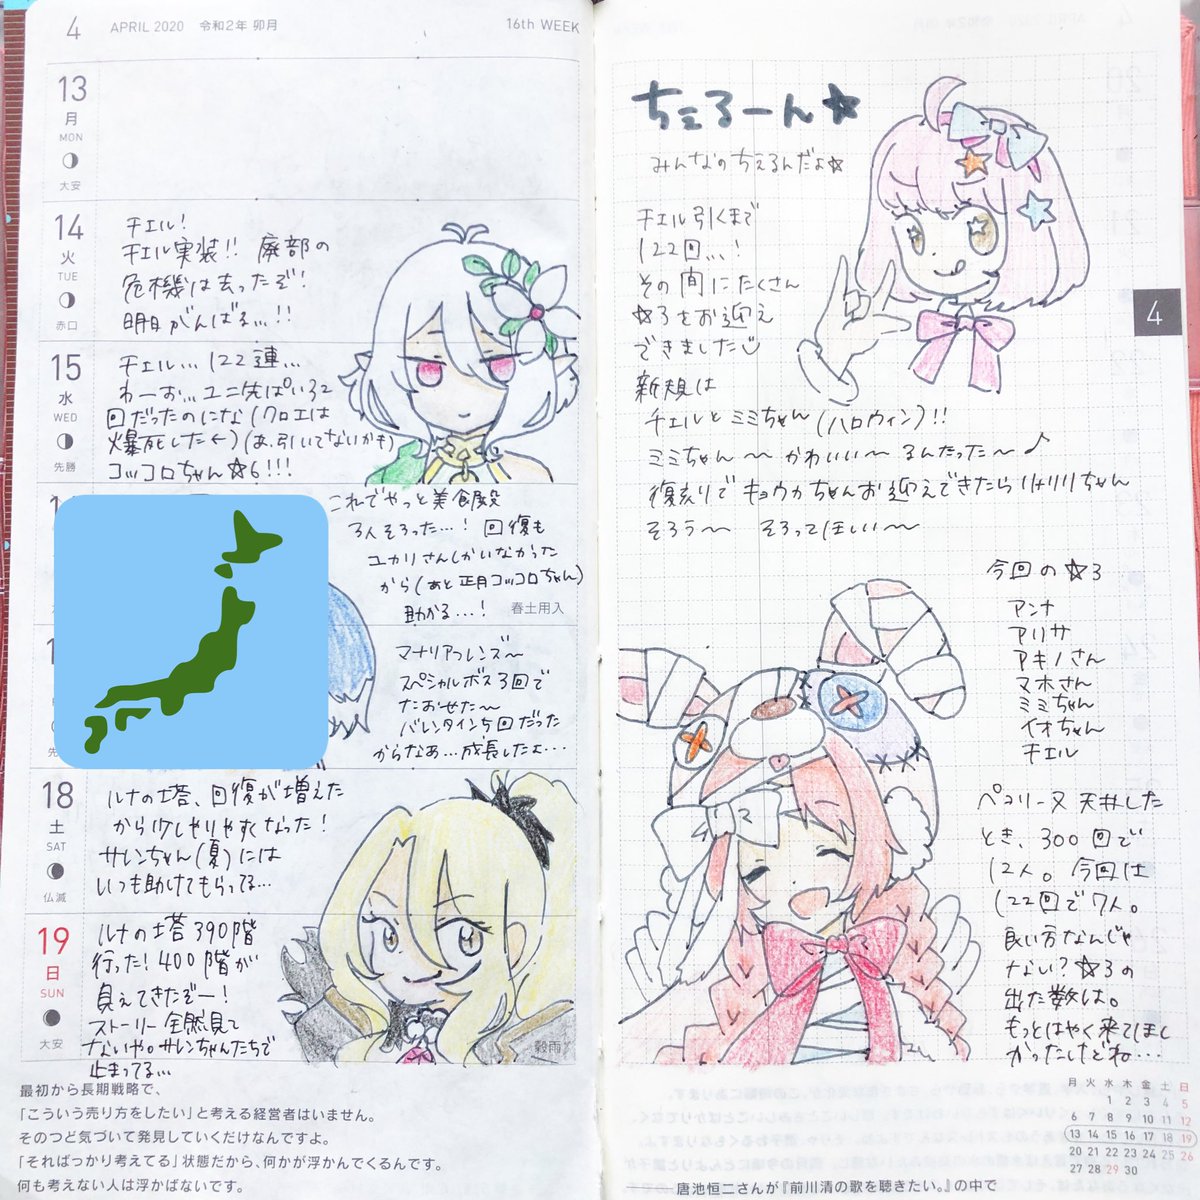 4 APRIL 2020 令和2年 卯月 16th WEEK
13
月
MON
大安
14
火
TUE
赤口
チエル!
チエル実装!! 廃部の
危機は去ったぞ!
明日がんばる…!!
15
水
WED
先勝
チエル… 122連…
わーお… ユニ先ぱい32
回だったのにな(クロエは
爆死した←)(あ、引いてないかも)
コッコロちゃん☆6!!!
これでやっと美食殿
3人そろった…! 回復も
ユカリさんしかいなかった
から(あと正月コッコロちゃん)
助かる…!
春土用入
マナリアフレンズ〜
スペシャルボス3回で
たおせた〜
バレンタイン5回だった
からなあ…成長したよ…
18
土
SAT
仏滅
ルナの塔、回復が増えた
からけしやりやすくなった!
サレンちゃん(夏)には
いつも助けてもらってる…
19
日
SUN
大安
ルナの塔390階
行った! 400階が
見えてきたぞー!
ストーリー全然見て
ないや。サレンちゃんたちで
止まってる…
穀雨
最初から長期戦略で、
「こういう売り方をしたい」と考える経営者はいません。
そのつど気づいて発見していくだけなんですよ。
「そればっかり考えてる」状態だから、何かが浮かんでくるんです。
何も考えない人は浮かばないです。
ちえるーん☆
みんなのちえるんだよ☆
チエル引くまで
122回…!
その間にたくさん
☆3をお迎え
できました
新規は
チエルとミミちゃん(ハロウィン)!!
ミミちゃん〜かわいい〜るんたった〜♪
復刻りでキョウカちゃんお迎えできたらリトリリちゃん
そろう〜 そろってほしい〜
4
今回の☆3
アンナ
アリサ
アキノさん
マホさん
ミミちゃん
イオちゃん
チエル
ペコリーヌ天井した
とき、300回で
12人。今回は
122回で7人。
良い方なんじゃ
ない?☆3の
出た数は。
もっとはやく来てほし
かったけどね…
月 火 水 木 金 土 日
1 2 3 4 5
6 7 8 9 10 11 12
13 14 15 16 17 18 19
20 21 22 23 24 25 26
27 28 29 30
唐池恒二さんが『前川清の歌を聴きたい。』の中で